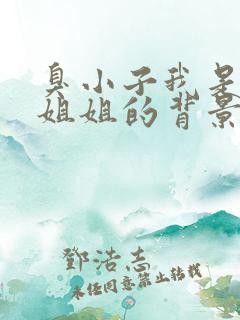 臭小子我是
姐姐的背景
鄧浩志
未经同意禁止转载